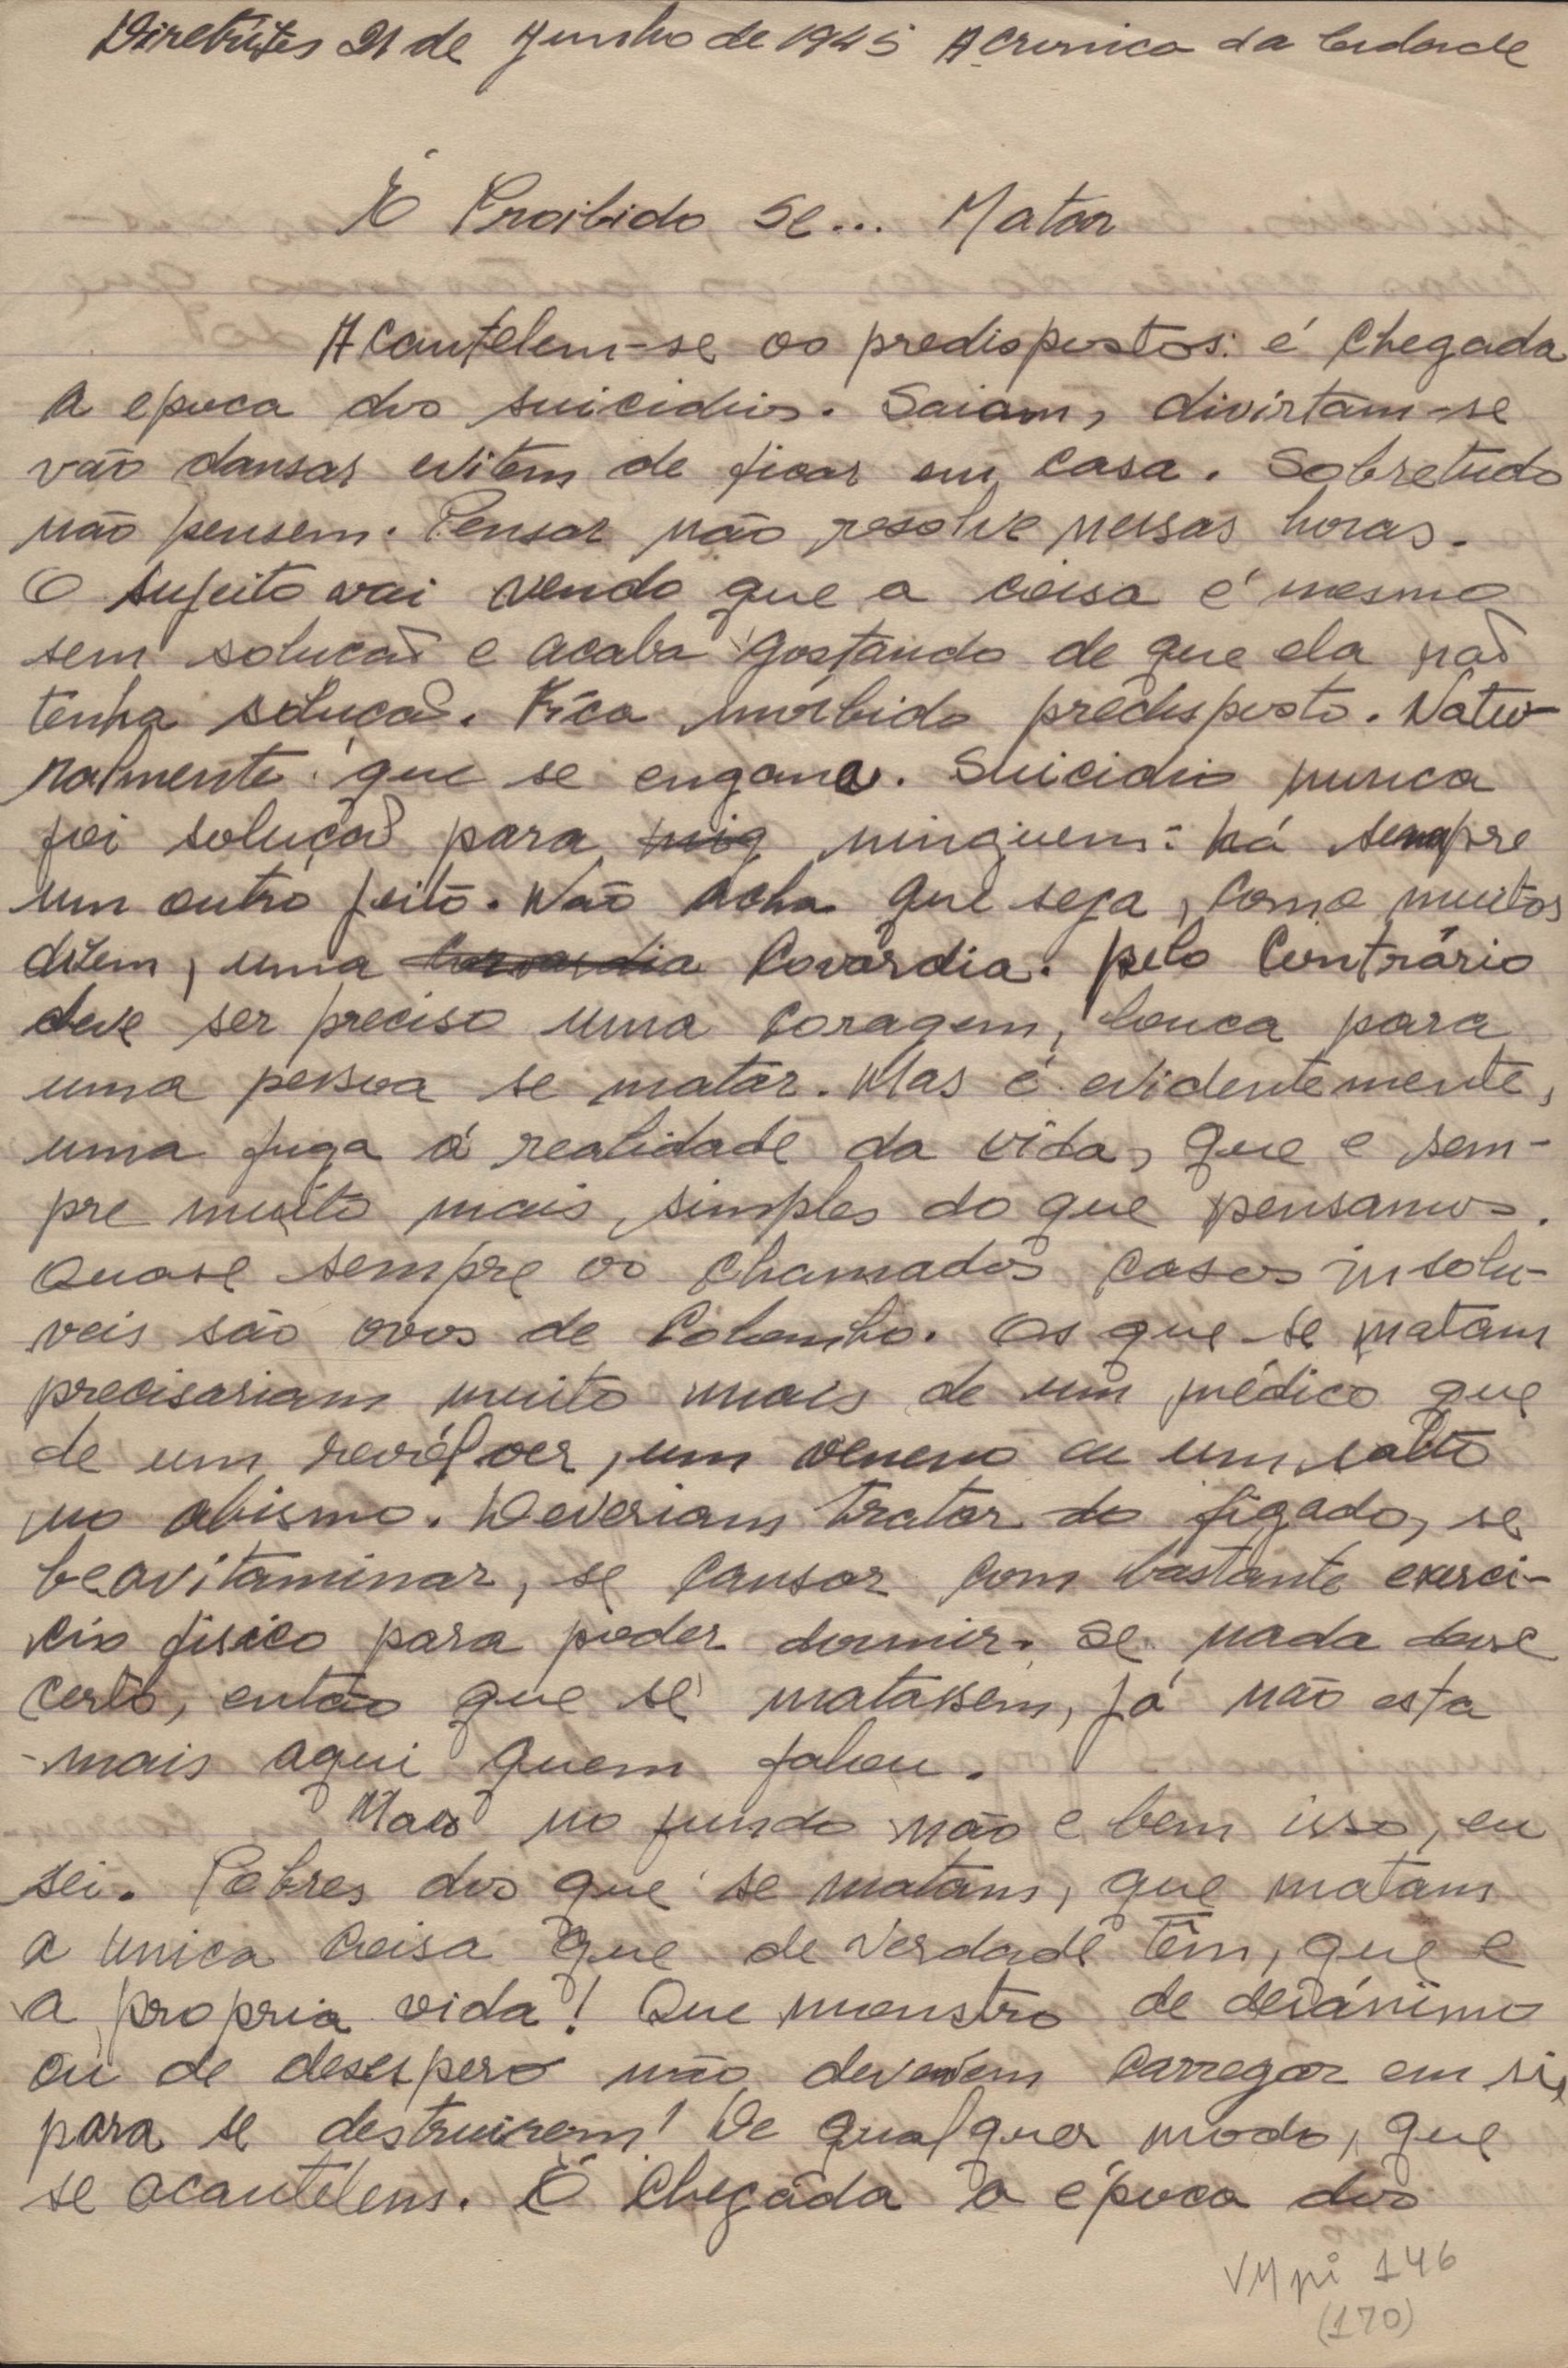 Diretrizes 21 de Junho de 1945 A cronica da Cidade
É Proibido se... Matar
Acautelem-se os predispostos: é chegada
a epoca dos suicidios. Saiam, divirtam-se
vão dansar evitem de ficar em casa. Sobretudo
não pensem. Pensar não resolve nessas horas.
O sujeito vai vendo que a coisa é mesmo
sem solucão e acaba gostando de que ela não
tenha solucão. Fica morbido predisposto. Natu-
ralmente que se engana. Suicidio nunca
foi solução para nig ninguem: há sempre
um outro jeito. Não acho que seja, como muitos
dizem, uma covardia Covardia. pelo Contrário
deve ser preciso uma coragem, louca para
uma pessoa se matar. Mas é evidentemente,
uma fuga á realidade da vida, que e sem-
pre muito mais simples do que pensamos.
Quase sempre os chamados casos insolu-
veis são ovos de Colombo. Os que se matam
precisariam muito mais de um médico que
de um revólver, um veneno ou um salto
no abismo. Deveriam tratar do figado, se
beavitaminar, se cansar com bastante exerci-
cio fisico para poder dormir. Se nada desse
certo, então que se matassem, já não esta
mais aqui quem falou.
Mas no fundo não e bem isso, eu
sei. Pobres dos que se matam, que matam
a unica coisa que de verdade têm, que e
a propria vida! Que monstro de desánimo
ou de desespero não devem carregar em si,
para se destruirem! De qualquer modo, que
se acautelem. É Chegada a época dos
VM pi 146
(170)